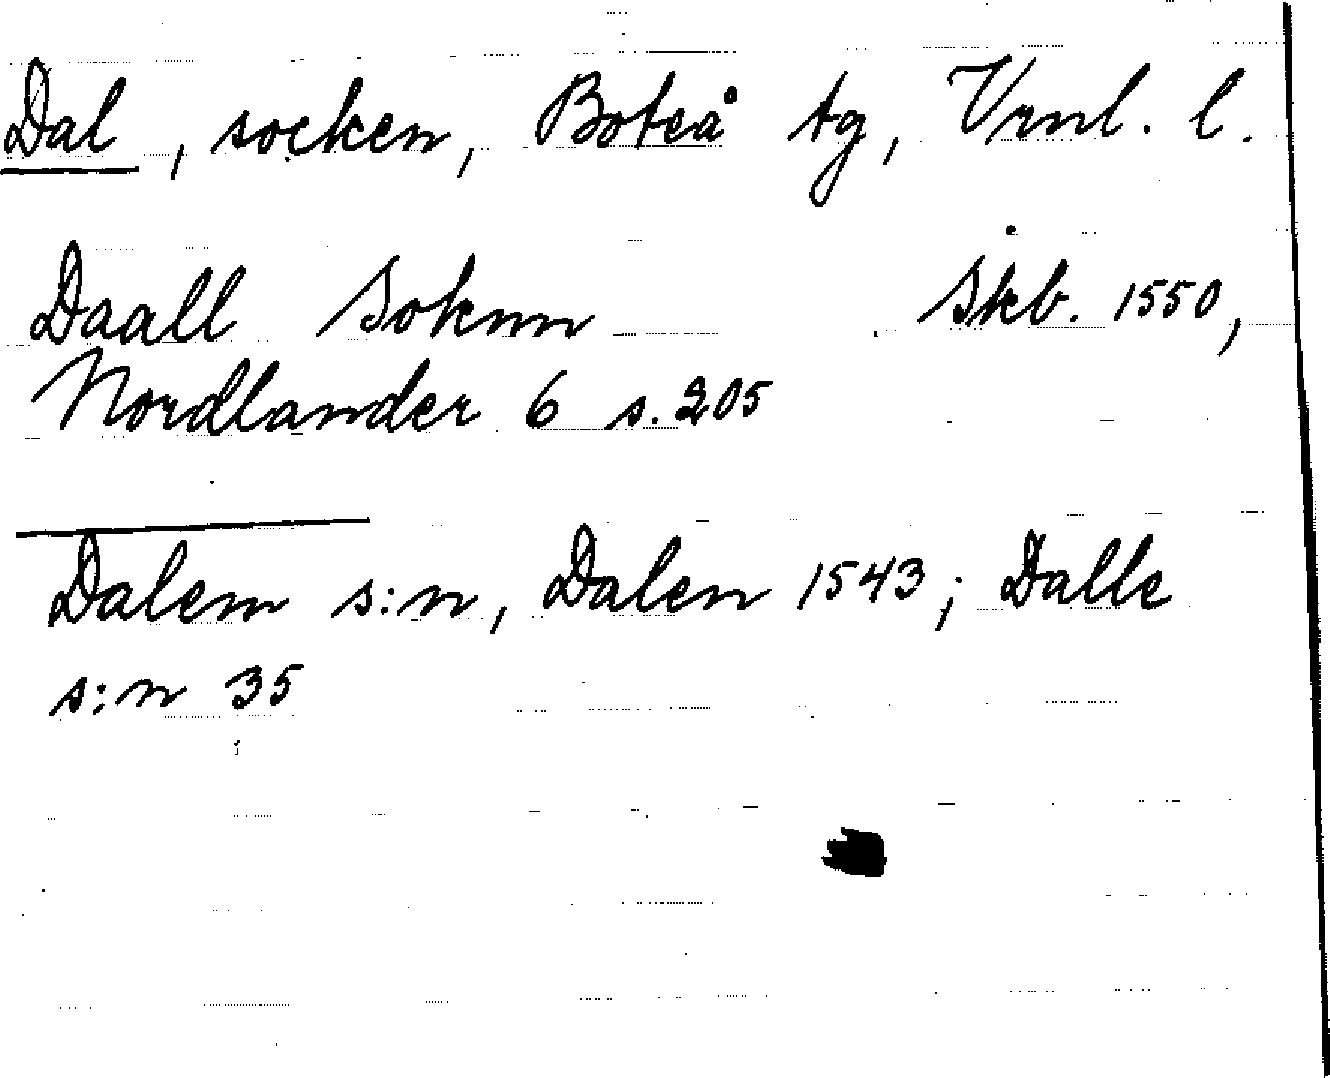 Dal, socken, Boteå tg, Vrnl. l.
Daall Soknn Skb. 1550,
Nordlander 6 s. 205
Dalem s:n, Dalen 1543; Dalle
s:n 35